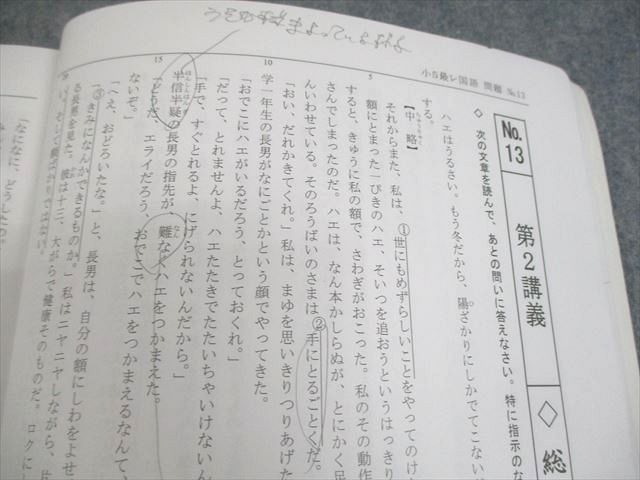 小5最レ国語 問題 No.13
No.13 第2講義 ◇ 総
◇ 次の文章を読んで、あとの問いに答えなさい。特に指示のな
ハエはうるさい。もう冬だから、陽ざかりにしかでてこない
する。
【中略】
それからまた、私は、①世にもめずらしいことをやってのけ
額にとまった一ぴきのハエ、そいつを追おうというはっきり
すると、きゅうに私の額で、さわぎがおこった。私のその動作
さんでしまったのだ。ハエは、なん本かしらぬが、とにかく足
んいわせている。そのろうばいのさまは②手にとるごとくだ。
「おい、だれかきてくれ。」私は、まゆを思いきりつりあげた
学一年生の長男がなにごとかという顔でやってきた。
「おでこにハエがいるだろう、とっておくれ。」
「だって、とれませんよ、ハエたたきでたたいちゃいけないん
「手で、すぐとれるよ、にげられないんだから。」
半信半疑の長男の指先が、難なくハエをつかまえた。
「どうだ、エライだろう、おでこでハエをつかまえるなんて、
ないぞ。」
「へえ、おどろいたな。」と、長男は、自分の額にしわをよせ
「③きみになんかできるものか。」私はニヤニヤしながら、片
る長男を見た。彼は十三、大がらで健康そのものだ。ロクに
い。そして額ばかりではない。
「なになに、どうしたの。